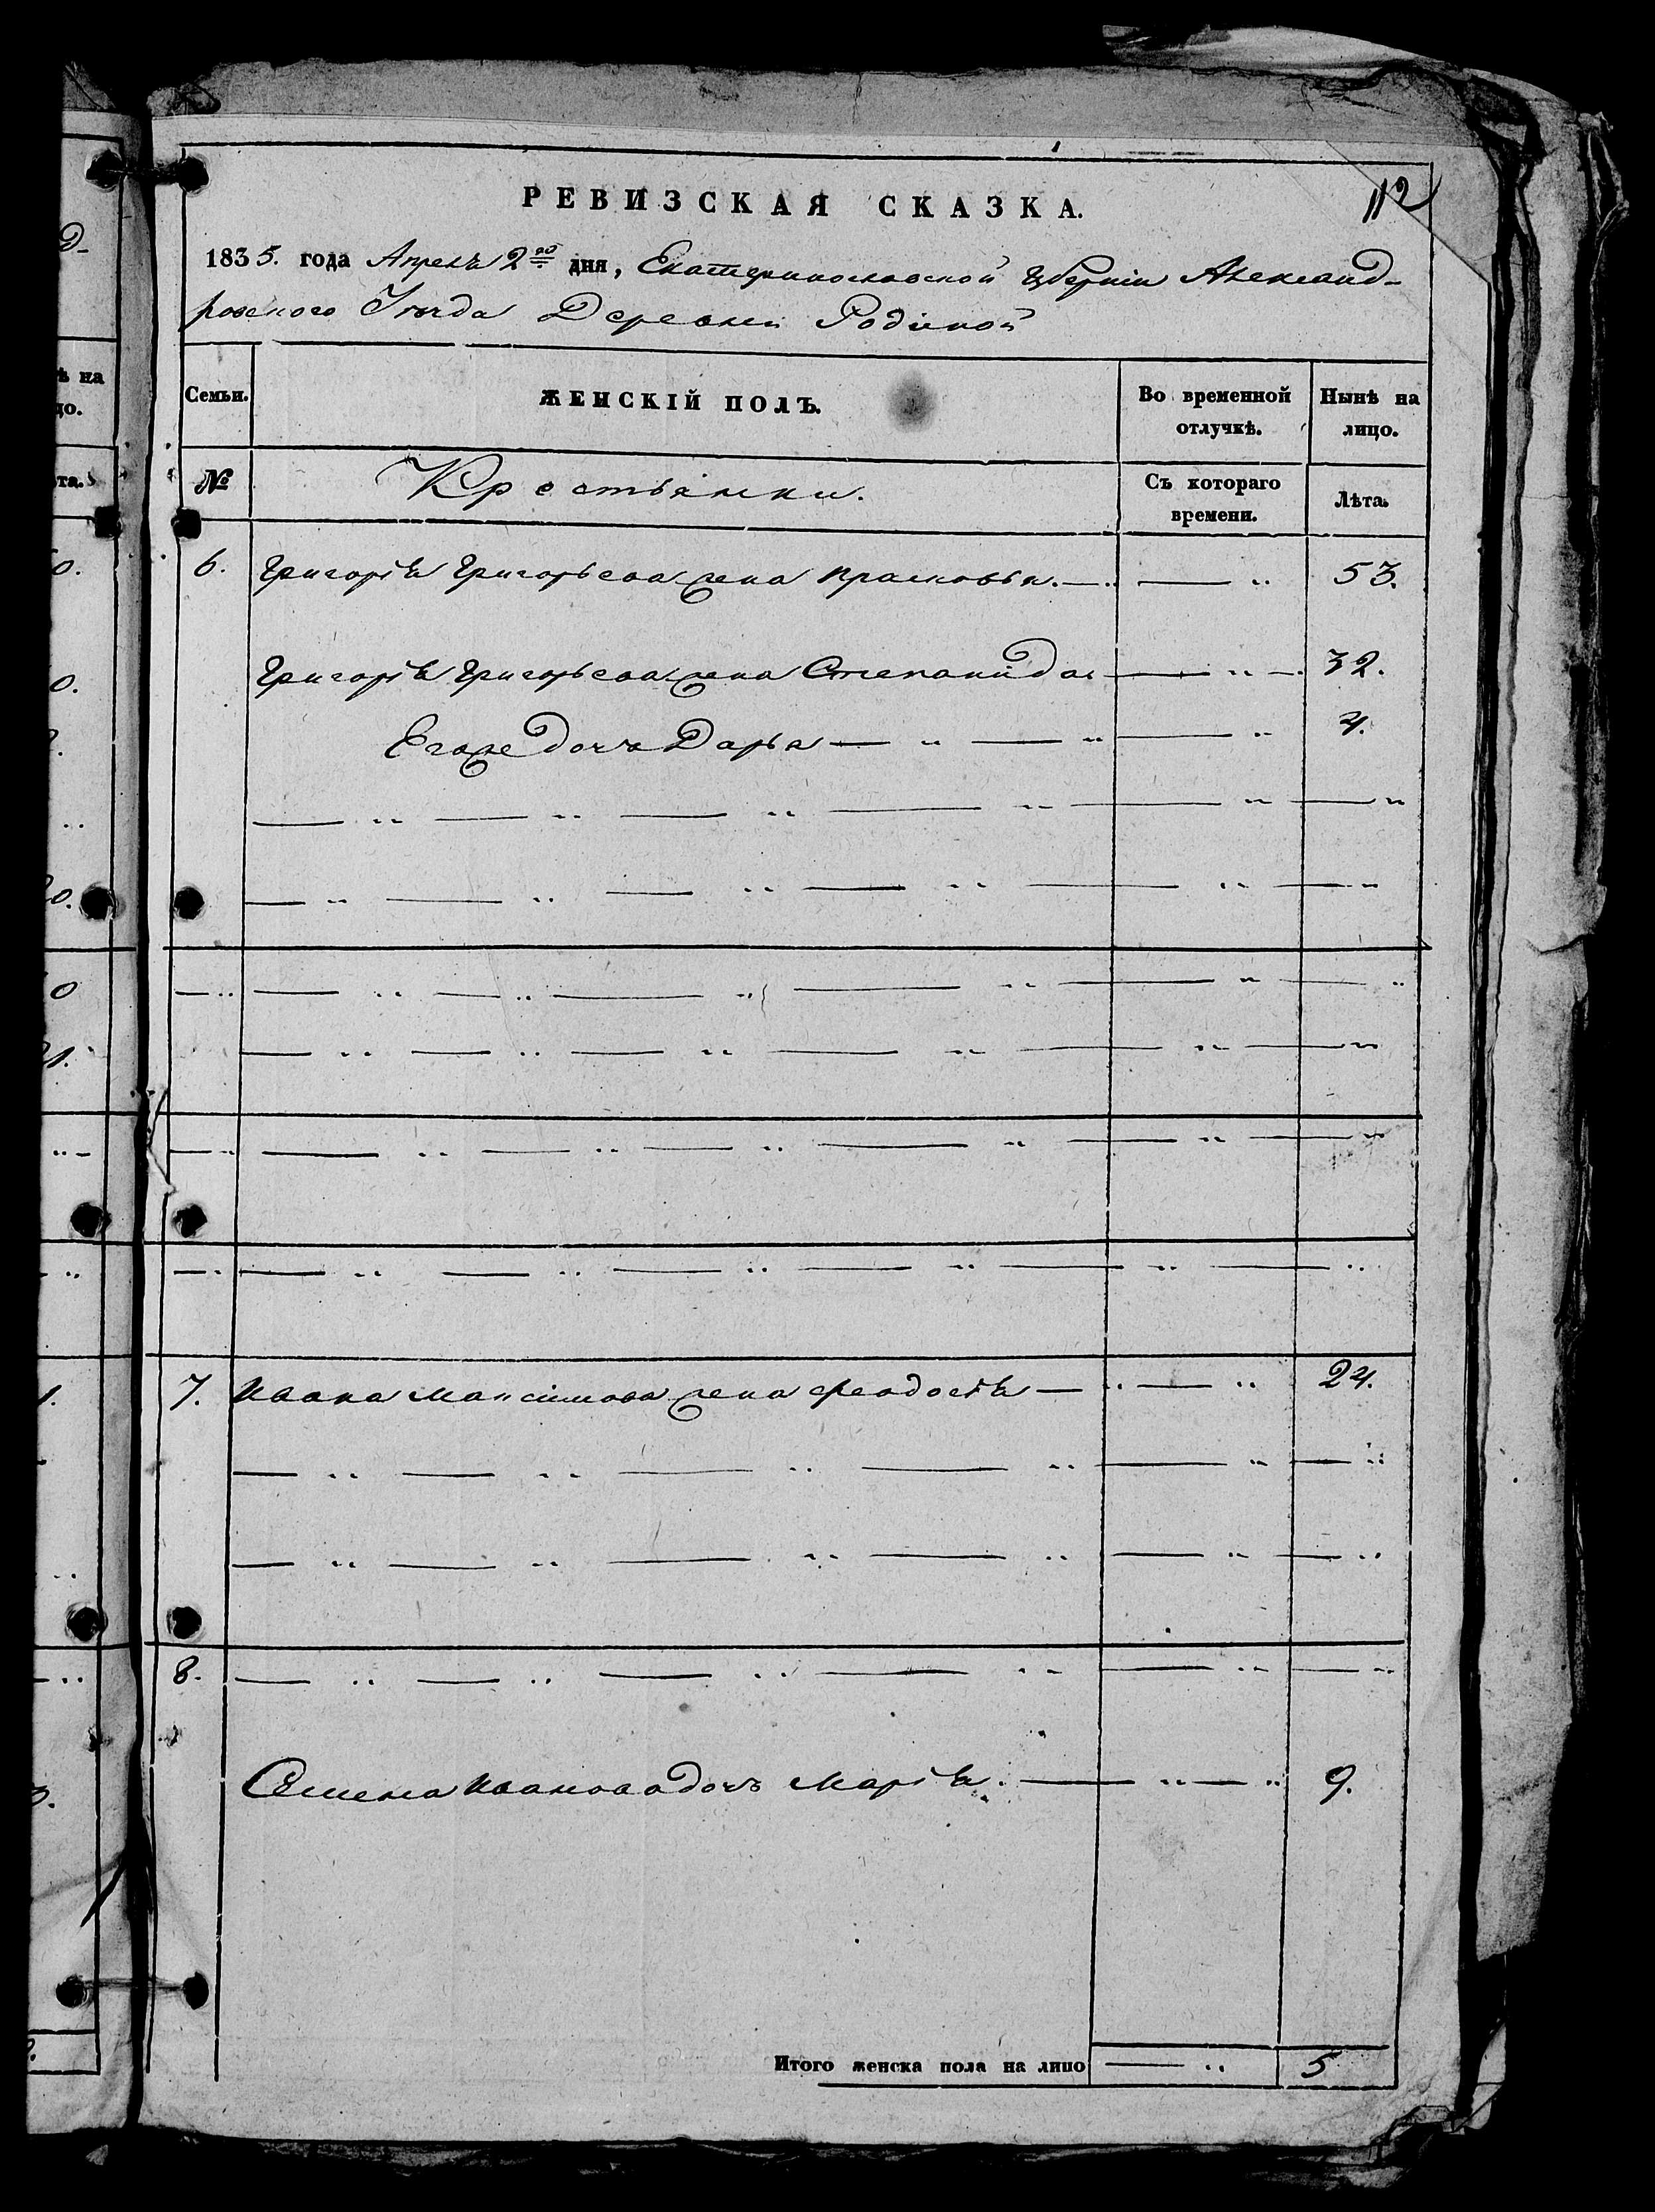 112
РЕВИЗСКАЯ СКАЗКА.
1835. года Апреля 2го дня, Екатеринославской Губерніи Александ-
ровского Уѣзда Деревни Родиной
Семьи. ЖЕНСКІЙ ПОЛЪ. Во временной отлучкѣ. Нынѣ на лицо.
№ Крестьянки. Съ котораго времени. Лѣта.
6. Григорія Григорьева жена Прасковья. — .. — .. 53.
Григорія Григорьева жена Степанида — .. — 32.
Его же дочь Дарья — .. — .. — .. 4.
7. Ивана Максимова жена Феодосія — .. — .. 24.
8.
Семена Иванова дочь Марія. — .. — .. 9.
Итого женска пола на лицо — .. 5